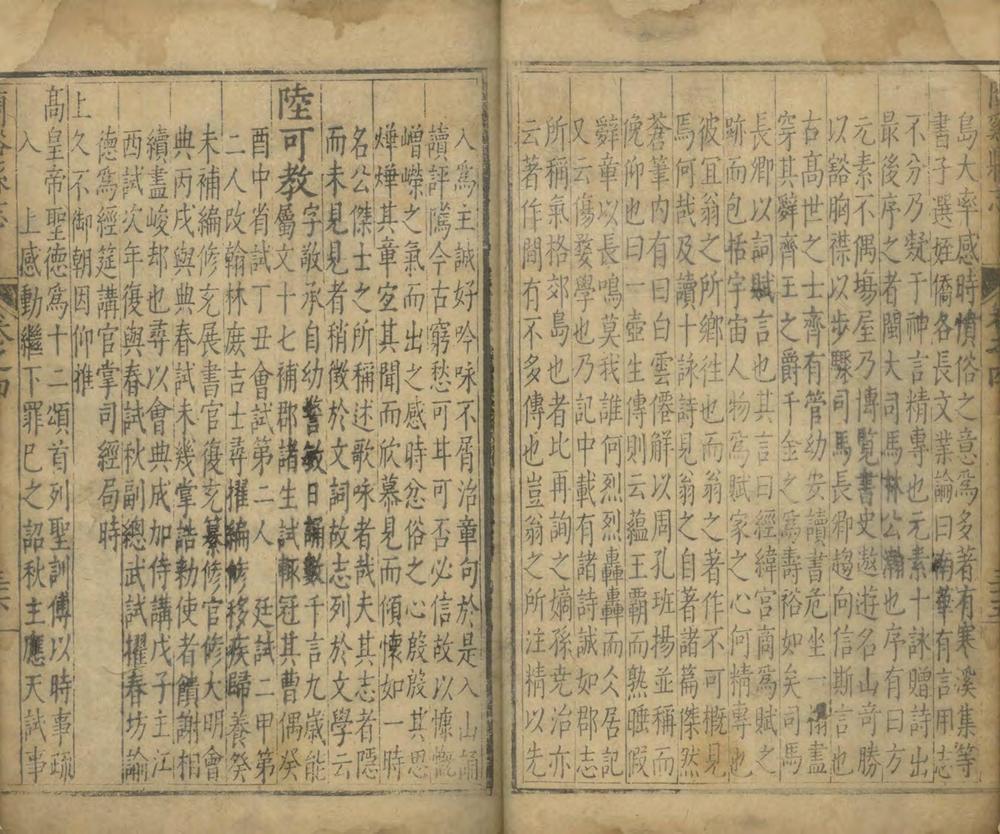 島大率感時憤俗之意爲多著有寒溪集等
書子選姪僑各長文業論曰南華有言用志
不分乃凝于神言精專也元素十詠贈詩出
最後序之者閩大司馬林公瀚也序有曰方
元素不偶塲屋乃博覽書史遨遊名山奇勝
以豁胸襟以步驟司馬長卿趨向信斯言也
古高世之士齊有管幼安讀書危坐一榻盡
穿其辭齊王之爵千金之寫壽裕如矣司馬
長卿以詞賦言也其言曰經緯宮商爲賦之
跡而包括宇宙人物寫賦家之心何精專也
彼冝翁之所鄉往也而翁之著作不可槪見
焉何哉及讀十詠詩見翁之自著諸篇傑然
蒼筆内有曰白雲僊解以周孔班揚並稱而
俛仰也曰一壺生傳則云蘊王霸而熟睡假
辭章以長鳴莫我誰何烈烈轟轟而久居記
又云傷婺學也乃記中載有諸詩誠如郡志
所稱氣格郊島也者比再詢之嫡孫堯治亦
云著作間有不多傳也豈翁之所注精以先
入爲主誠好吟咏不屑治章句於是入山誦
讀評隲今古窮愁可耳可否必信故以慷慨
嶒嶸之氣而出之感時忿俗之心殷殷其思
燁燁其章宜其聞而欣慕見而傾懷如一時
名公傑士之所稱述歌咏者哉夫其志者隱
而未見見者稍徵於文詞故志列於文學云
陸可教字敬承自幼警敏日誦數千言九歲能
屬文十七補郡諸生試輒冠其曹偶癸
酉中省試丁丑會試第二人 廷試二甲第
二人改翰林庻吉士尋擢編修移疾歸養癸
未補編修充展書官復充纂修官修大明會
典丙戌與典春試未幾掌誥勅使者饋謝相
續盡峻却也尋以會典成加侍講戊子主江
西試次年復與春試秋副總武試擢春坊諭
德爲經筵講官掌司經局時
上久不御朝因仰推
高皇帝聖德爲十二頌首列聖訓傅以時事疏
入 上感動繼下罪巳之詔秋主應天試事